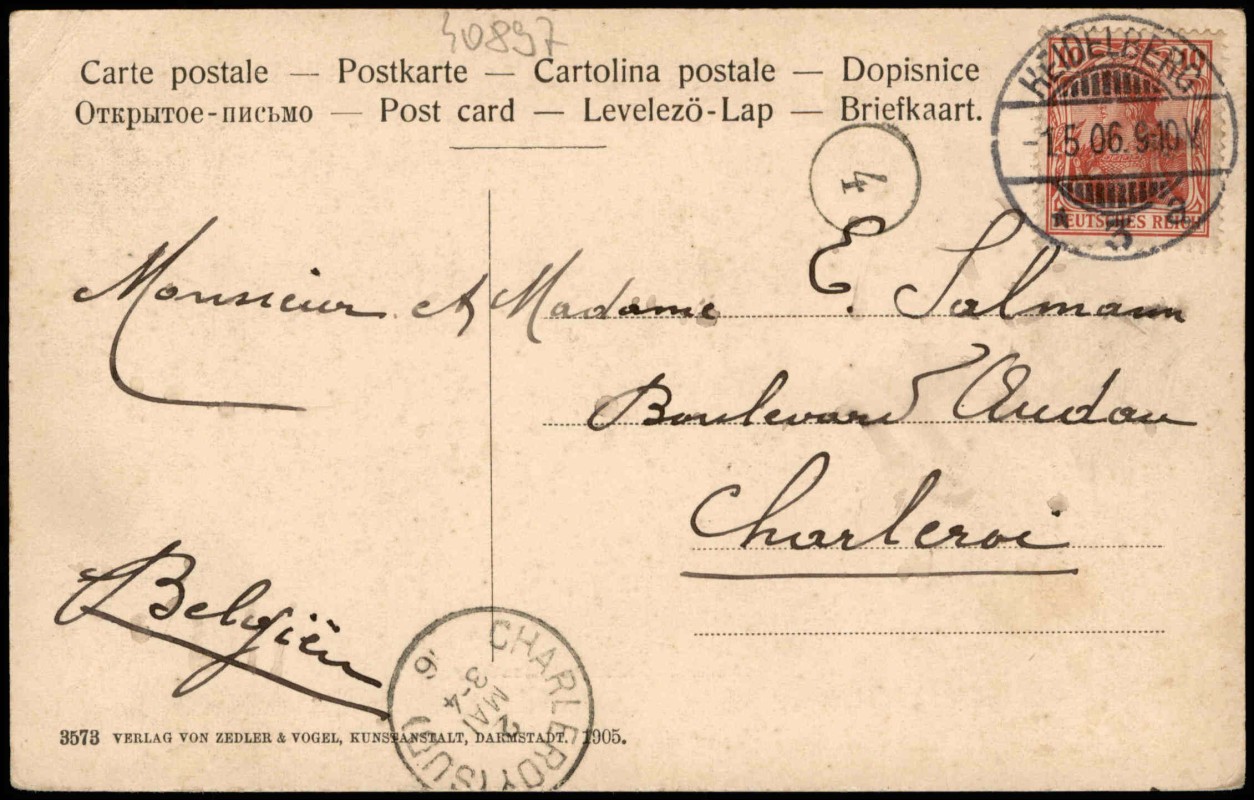 40897
Carte postale — Postkarte — Cartolina postale — Dopisnice
Открытое-письмо — Post card — Levelezö-Lap — Briefkaart.
10 10
DEUTSCHES REICH
HEIDELBERG
-1.5.06.9-10V.
* 3 a
4
Monsieur et Madame E. Salmann
Boulevard Audau
Charleroi
Belgiën
CHARLEROY (SUD)
3-4
MAI
2
6
3573 VERLAG VON ZEDLER & VOGEL, KUNSTANSTALT, DARMSTADT. 1905.